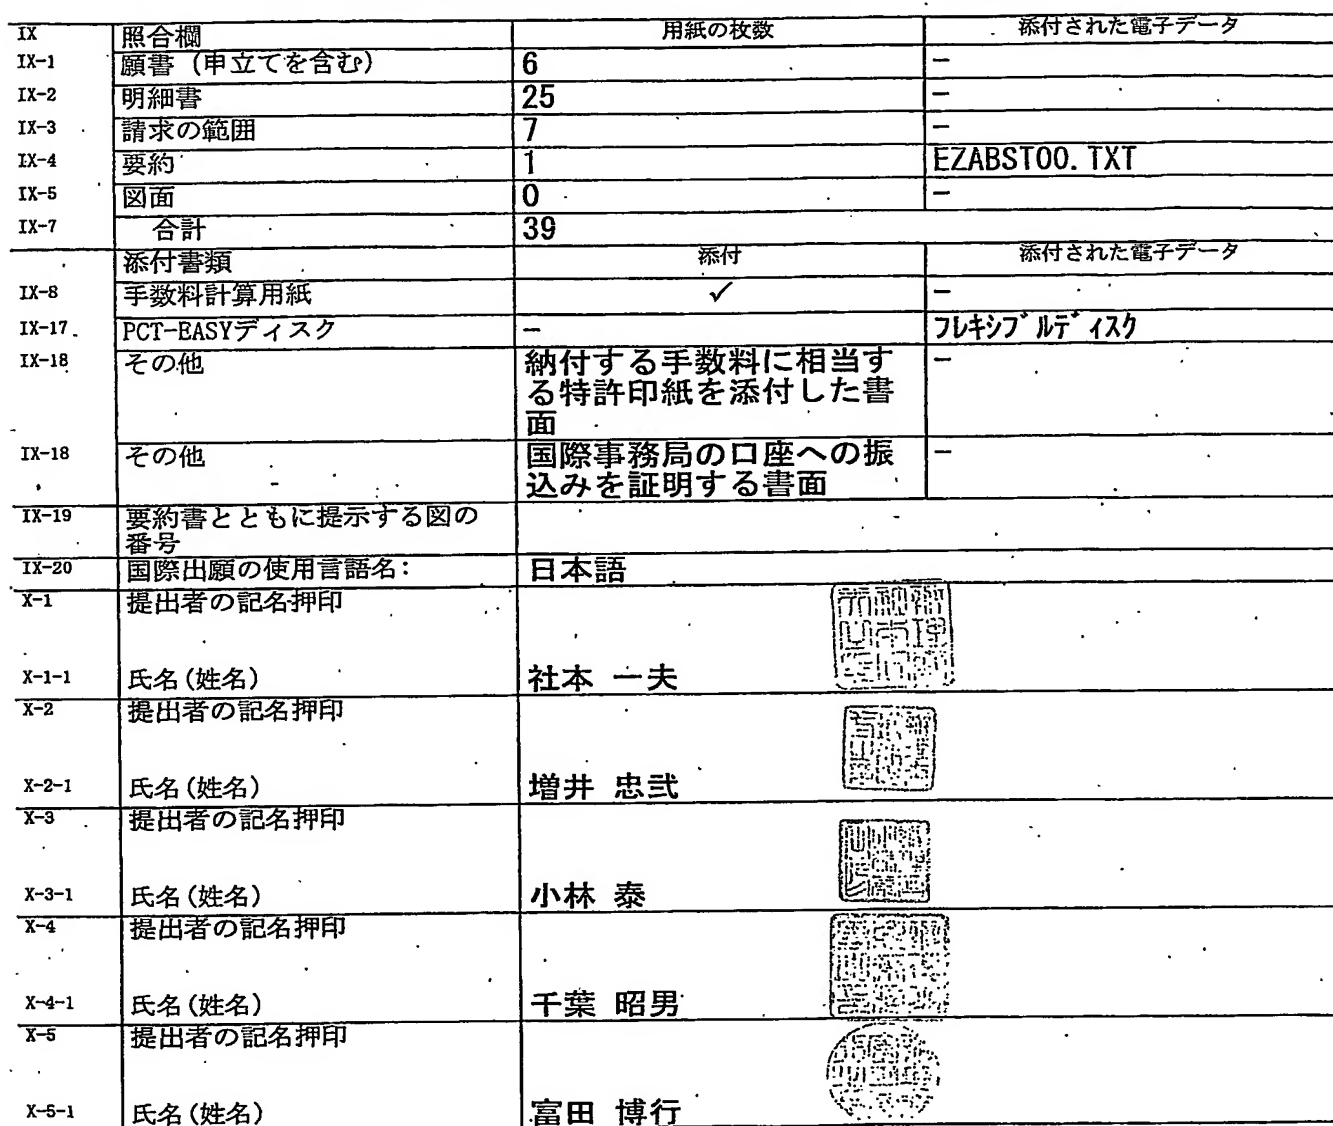 IX 照合欄 用紙の枚数 添付された電子データ
IX-1 願書 (申立てを含む) 6 -
IX-2 明細書 25 -
IX-3 請求の範囲 7 -
IX-4 要約 1 EZABST00.TXT
IX-5 図面 0 -
IX-7 合計 39
添付書類 添付 添付された電子データ
IX-8 手数料計算用紙 ✓ -
IX-17 PCT-EASYディスク - フレキシブルディスク
IX-18 その他 納付する手数料に相当す -
る特許印紙を添付した書
面
IX-18 その他 国際事務局の口座への振 -
込みを証明する書面
IX-19 要約書とともに提示する図の
番号
IX-20 国際出願の使用言語名: 日本語
X-1 提出者の記名押印
X-1-1 氏名(姓名) 社本 一夫
X-2 提出者の記名押印
X-2-1 氏名(姓名) 増井 忠弐
X-3 提出者の記名押印
X-3-1 氏名(姓名) 小林 泰
X-4 提出者の記名押印
X-4-1 氏名(姓名) 千葉 昭男
X-5 提出者の記名押印
X-5-1 氏名(姓名) 富田 博行